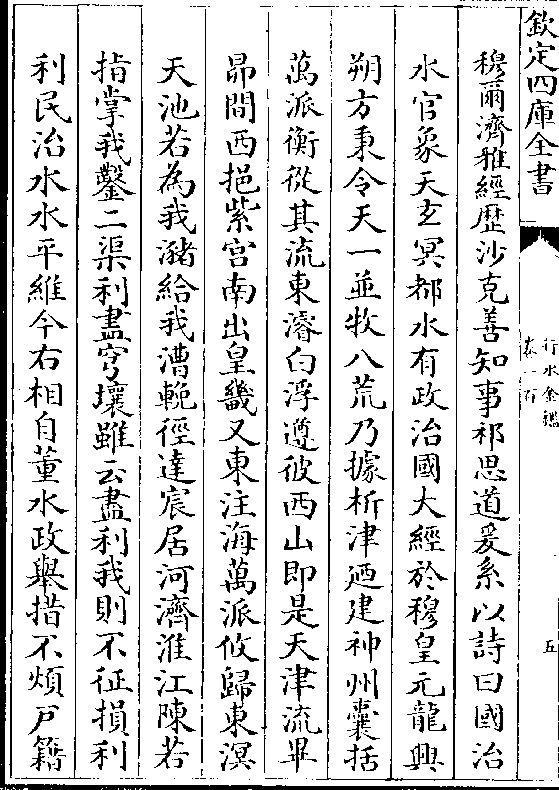 欽定四庫全書
穆爾濟雅經歷沙克善知事祁思道爰系以詩曰國治
水官象天玄冥都水有政治國大經於穆皇元龍興
朔方秉令天一並牧八荒乃據析津迺建神州囊括
萬派衡從其流東濬白浮遵彼西山即是天津流畢
昴間西挹紫宫南出皇畿又東注海萬派攸歸東溟
天池若為我瀦給我漕輓徑達宸居河濟淮江陳若
指掌我鑿二渠利盡穹壤雖云盡利我則不征損利
利民治水水平維今右相自董水政舉措不煩戶籍
行水金鑑
卷一百
五